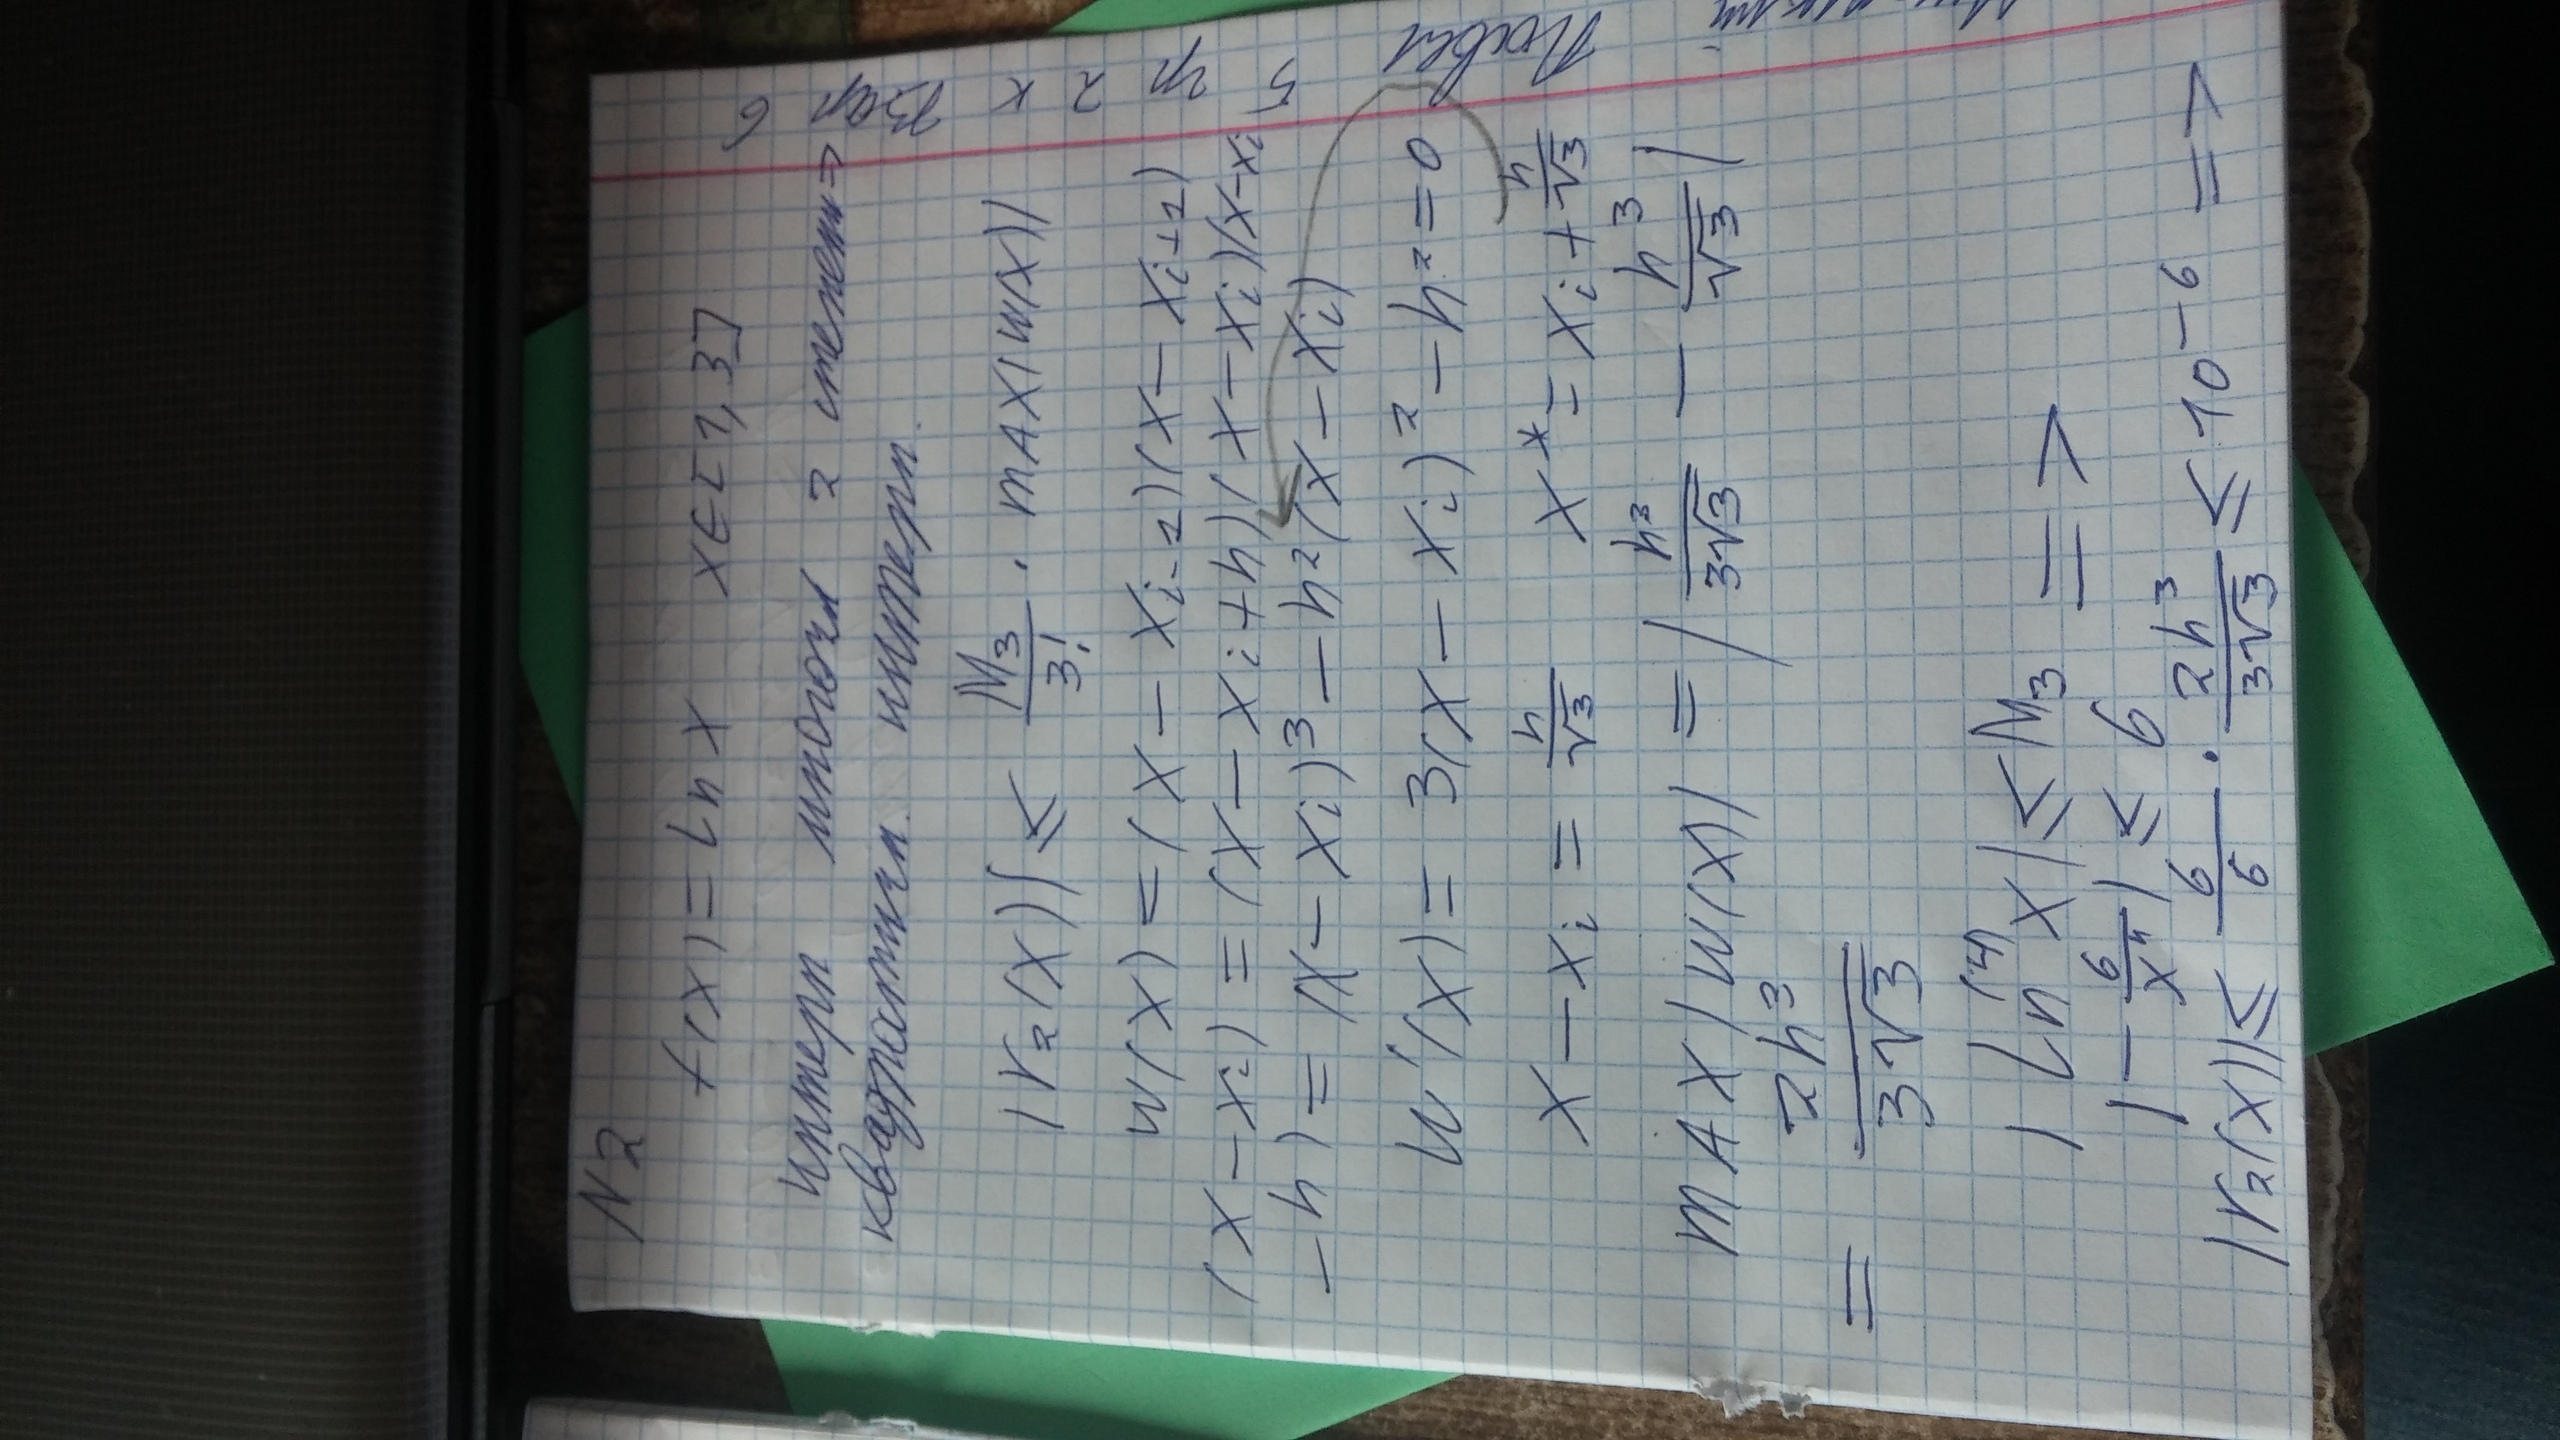 N2
f(x) = ln x x ∈ [1, 3]
интерп многочл 2 степени =>
квадратичн. интерп.
|r₂(x)| ≤ M₃/3! · MAX|W(x)|
W(x) = (x - xᵢ₋₁)(x - xᵢ₊₁)
(x - xᵢ) = (x - xᵢ + h)(x - xᵢ)(x - xᵢ
- h) = (x - xᵢ)³ - h²(x - xᵢ)
W'(x) = 3(x - xᵢ)² - h² = 0
x - xᵢ = h/√3 x* = xᵢ + h/√3
MAX|W(x)| = |h³/3√3 - h³/√3|
= 2h³/3√3
|ln⁽⁴⁾ x| ≤ M₃ =>
|- 6/x⁴| ≤ 6
|r₂(x)| ≤ 6/6 · 2h³/3√3 ≤ 10⁻⁶ =>
Павел 5 гр 2 к Вар 6